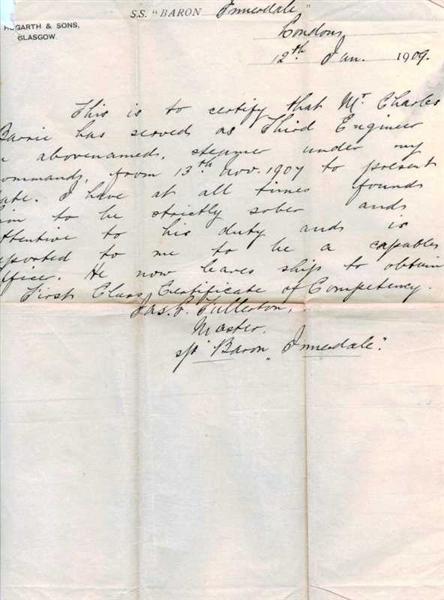 S.S. "BARON Innerdale"
HOGARTH & SONS,
GLASGOW.
London,
12th Jan. 1909.
This is to certify that Mr Charles
Barrie has served as Third Engineer
in abovenamed, steamer under my
command, from 13th Nov. 1907 to present
date. I have at all times found
him to be strictly sober and
attentive to his duty and is
reported to me to be a capable
officer. He now leaves ship to obtain
First Class Certificate of Competency.
Jas. C. Fullerton,
Master.
s/s "Baron Innerdale".